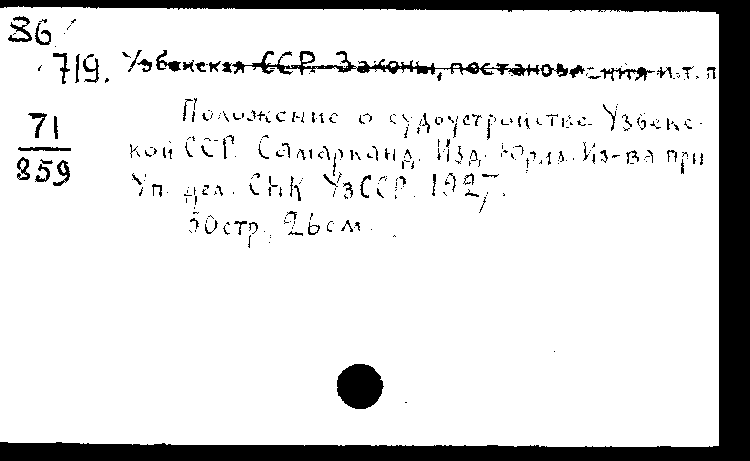 86
719. Узбекская ССР. Законы, постановления и.т.п
71
859
Положение о судоустройстве Узбекс-
кой ССР. Самарканд. Изд. Юрид. Из-ва при
Уп. дел. СНК УзССР. 1927.
50стр., 26см.